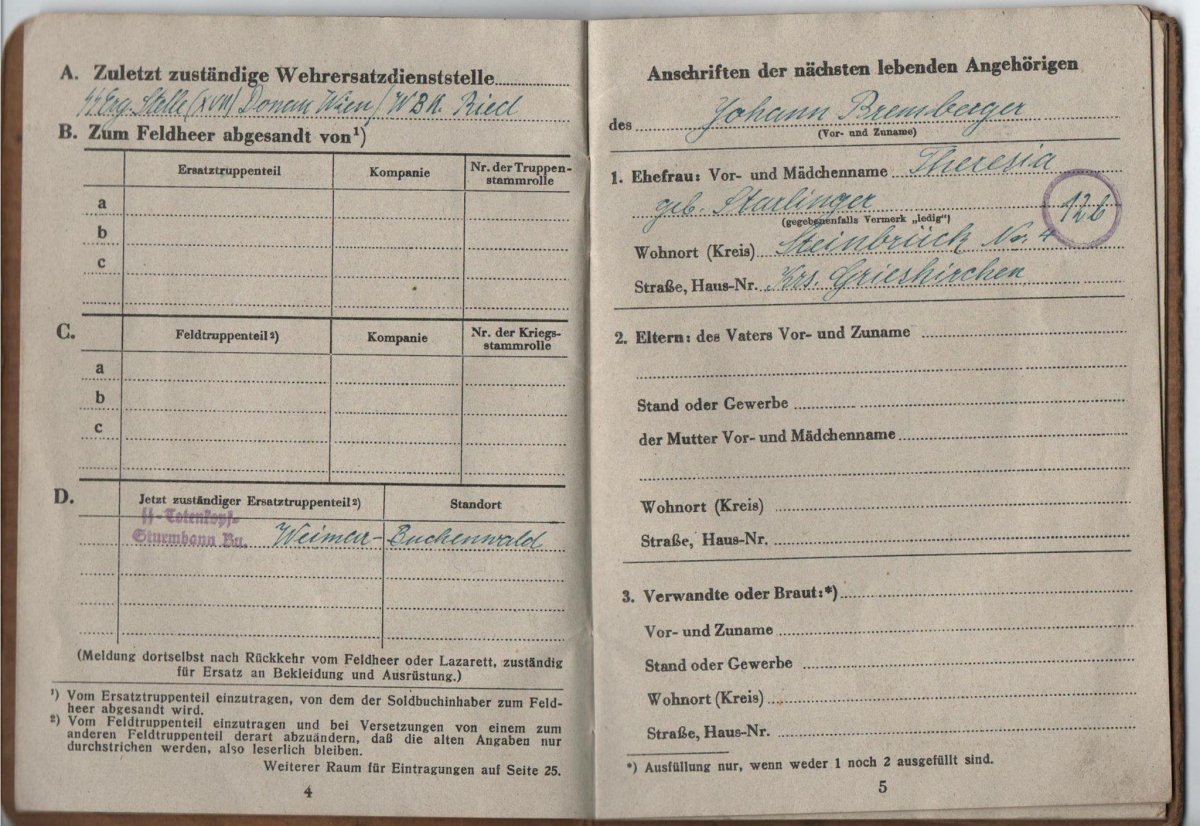 A. Zuletzt zuständige Wehrersatzdienststelle
SS Erg. Stelle (XVII) Donau Wien / WBK. Ried
B. Zum Feldheer abgesandt von¹)
Ersatztruppenteil Kompanie Nr. der Truppen-
stammrolle
a
b
c
C. Feldtruppenteil²) Kompanie Nr. der Kriegs-
stammrolle
a
b
c
D. Jetzt zuständiger Ersatztruppenteil²) Standort
SS-Totenkopf-
Sturmbann Bu. Weimar-Buchenwald
(Meldung dortselbst nach Rückkehr vom Feldheer oder Lazarett, zuständig
für Ersatz an Bekleidung und Ausrüstung.)
¹) Vom Ersatztruppenteil einzutragen, von dem der Soldbuchinhaber zum Feld-
heer abgesandt wird.
²) Vom Feldtruppenteil einzutragen und bei Versetzungen von einem zum
anderen Feldtruppenteil derart abzuändern, daß die alten Angaben nur
durchstrichen werden, also leserlich bleiben.
Weiterer Raum für Eintragungen auf Seite 25.
4
Anschriften der nächsten lebenden Angehörigen
des Johann Bremberger
(Vor- und Zuname)
1. Ehefrau: Vor- und Mädchenname Theresia
geb. Starlinger
126
(gegebenenfalls Vermerk „ledig")
Wohnort (Kreis) Steinbrück No. 4
Straße, Haus-Nr. Krs. Grieskirchen
2. Eltern: des Vaters Vor- und Zuname
Stand oder Gewerbe
der Mutter Vor- und Mädchenname
Wohnort (Kreis)
Straße, Haus-Nr.
3. Verwandte oder Braut:*)
Vor- und Zuname
Stand oder Gewerbe
Wohnort (Kreis)
Straße, Haus-Nr.
*) Ausfüllung nur, wenn weder 1 noch 2 ausgefüllt sind.
5